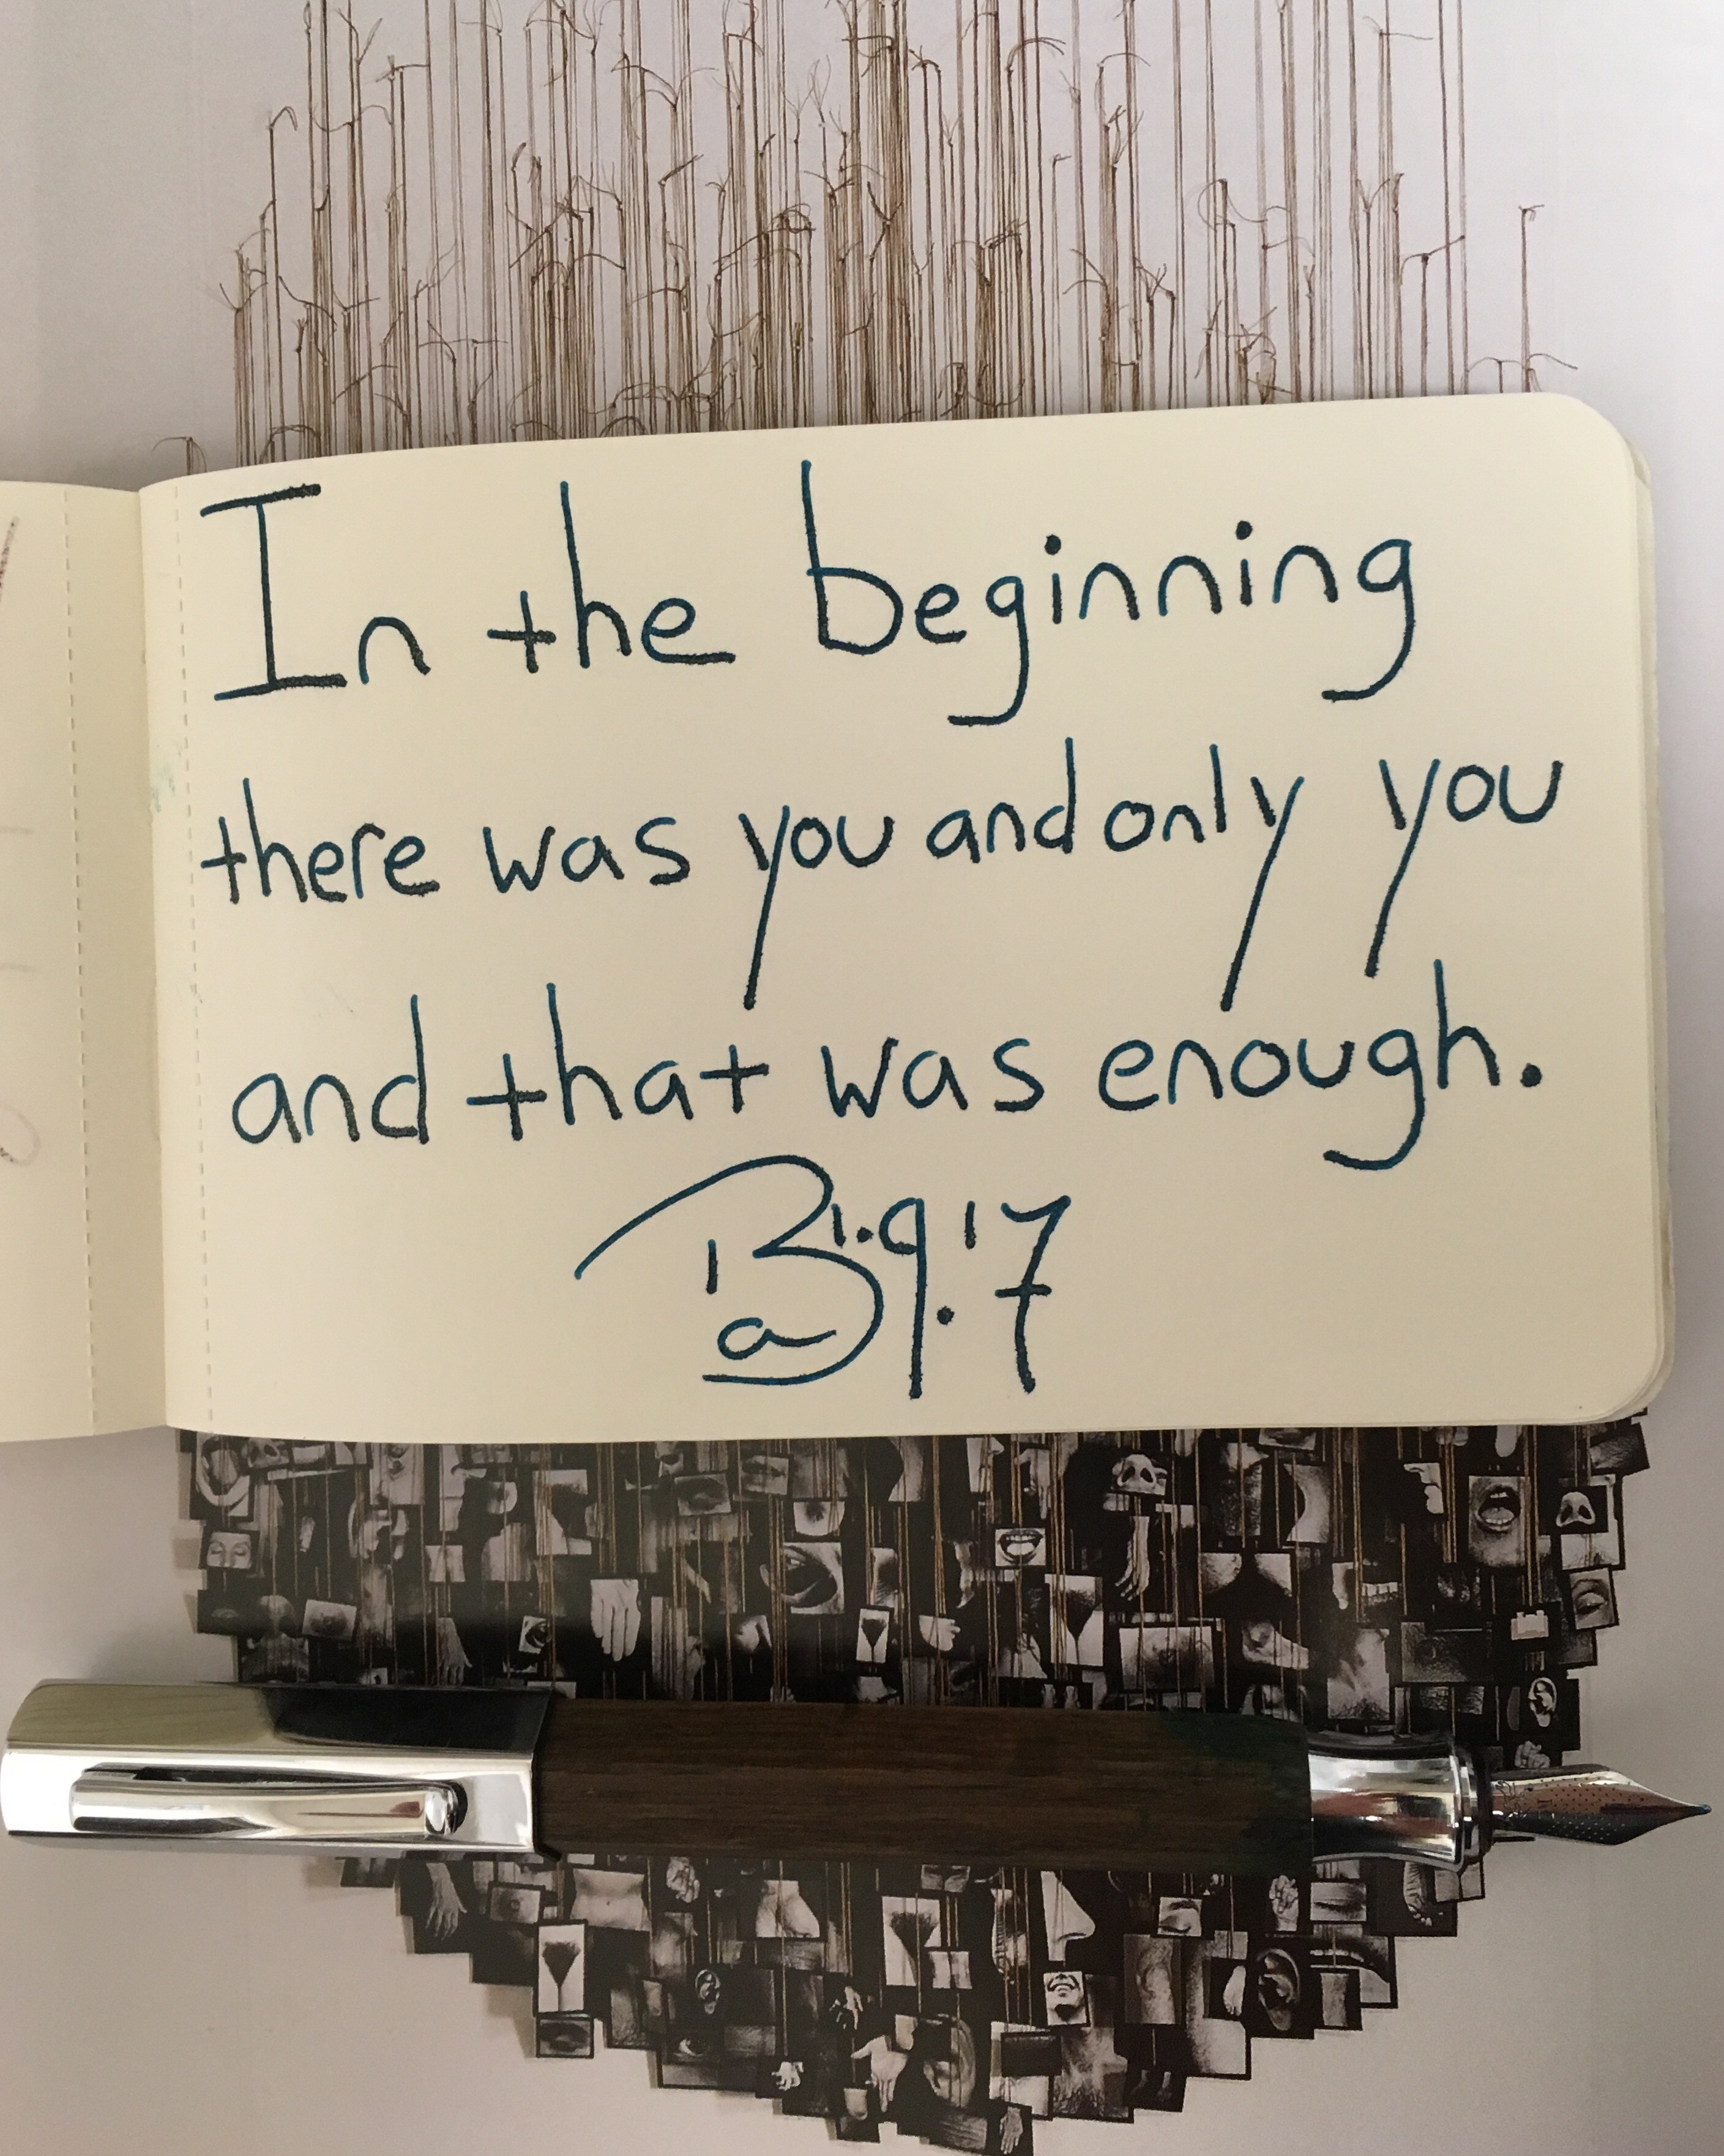 In the beginning
there was you and only you
and that was enough.